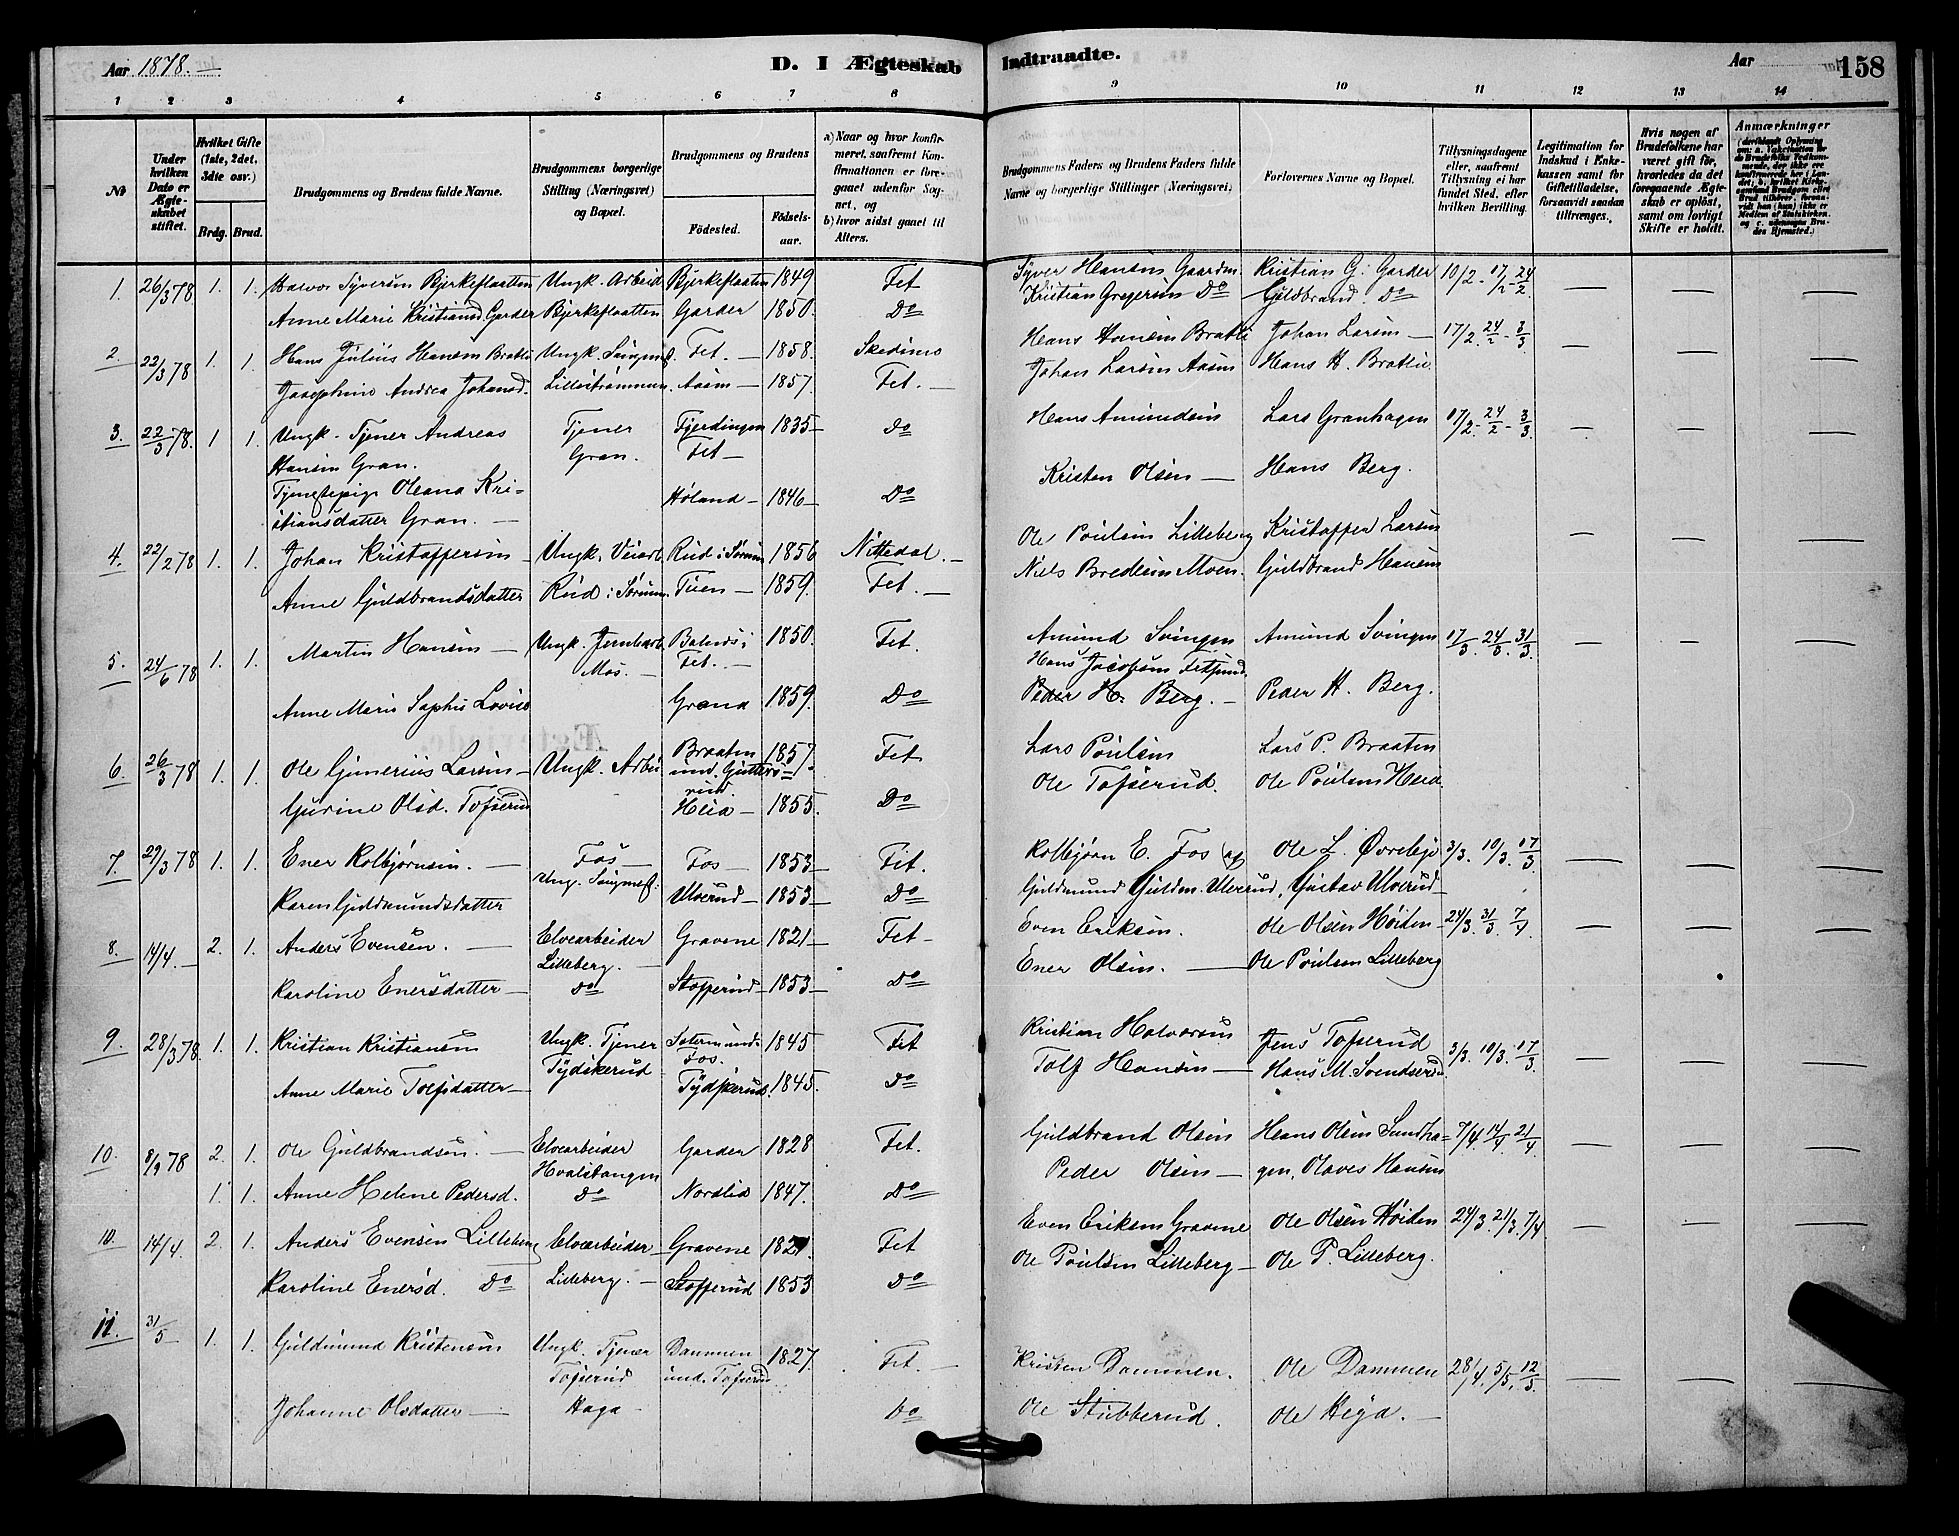 Aar 1878. —
D. I Ægteskab Indtraadte.
Aar
158
1 2 3 4 5 6 7 8 9 10 11 12 13 14
No
Under hvilken Dato er Ægteskabet stiftet.
Hvilket Gifte (1ste, 2det, 3die osv.)
Brdg. Brud.
Brudgommens og Brudens fulde Navne.
Brudgommens borgerlige Stilling (Næringsvei) og Bopæl.
Brudgommens og Brudens
Fødested.
Fødselsaar.
a) Naar og hvor konfirmeret, saafremt Konfirmationen er foregaaet udenfor Sognet, og
b) hvor sidst gaaet til Alters.
Brudgommens Faders og Brudens Faders fulde Navne og borgerlige Stillinger (Næringsvei)
Forlovernes Navne og Bopæl.
Tillysningsdagene eller, saafremt Tillysning ei har fundet Sted, efter hvilken Bevilling.
Legitimation for Indskud i Enkekassen samt for Giftetilladelse, forsaavidt saadan tiltrænges.
Hvis nogen af Brudefolkene har været gift før, hvorledes da det foregaaende Ægteskab er opløst, samt om lovligt Skifte er holdt.
Anmærkninger
1. 26/3 78 1. 1. Halvor Syversen Bjerkeflaatten Ungk. Arbeid Bjerkeflaatten 1849 Fet Syver Hansen Gaarden Kristian G. Garder 10/2 - 17/2 - 24/2 — — —
Anne Marie Kristiansd. Garder Bjerkeflaatten Garder 1850. Do Kristian Gregersen Do Guldbrand Do
2. 22/3 78 1. 1. Hans Julius Hansen Bratli Ungk. Fet. — 1858. Skedsmo Hans Hansen Bratli Johan Larsen — 17/2. 24/2 - 3/3 — — —
Josephine Andrea Johansd. Lillestrømmen. Aasen — 1857. Fet. — Johan Larsen Aasen Hans H. Bratli
3. 22/3 78. 1 1. Ungk. Tjener Andreas Tjener Fjerdingen 1835 — Do Hans Amundsen Lars Granhagen 17/2 - 24/2 - 3/3 — — —
Hansen Gran. Gran. Fet —
Tjenestepige Oleana Kri= Høland — 1846 — Do Kristen Olsen — Hans Berg.
stiansdatter Gran. —
4. 22/2 78 1. 1. Johan Kristoffersen — Ungk. Veiarb. Rud i Sørum 1856 Nittedal. — Ole Poulsen Lilleberg Kristoffer Larsen — — —
Anne Guldbrandsdatter Rud i Sørum. Tuen — 1859. Fet. — Niels Bredesen Moen. Guldbrand Hansen
5. 24/6 78 1. 1. Martin Hansen — Ungk. Jernbarb. Balnes i 1850. Fet. Amund Svingen Amund Svingen 17/3. 24/3. 31/3. — — —
Mos. — Fet. — Hans Jacobsen Fetsund
Anne Marie Sophie Lovise Grand 1859. Do Peder H. Berg. — Peder H. Berg.
6. 26/3 78 1. 1. Ole Gunerius Larsen — Ungk. Arbei Braaten 1857. Fet Lars Poulsen Lars P. Braaten
und. Gutters=
rud
Gurine Olsd. Tofserud Heia — 1855. Do Ole Tofserud. Ole Poulsen Heia
7. 29/3 78 1. 1. Ener Kolbjørnsen. — Fos — Fos — 1853 — Fet. Kolbjørn E. Fos Ole L. Øvreby 3/3. 10/3. 17/3 — — —
Karen Guldmundsdatter Ung. Ulverud — 1853 — Do Guldmund Guldm. Ulverud, Gustav Ulverud
8. 14/4. — 2. 1. Anders Evensen. — Elvearbeider Gravene 1821 — Fet — Even Eriksen. Ole Olsen Høiden 24/3. 31/3 7/4. — — —
Lilleberg. —
Karoline Enersdatter — Do Stofferud — 1853 — Do Ener Olsen. — Ole Poulsen Lilleberg
9. 28/3 78. 1. 1. Kristian Kristiansen Ungk. Tjener 1845 Fet Kristian Halvorsen Jens Tofserud 3/3. 10/3. 17/3 — — —
Tydskerud Fos.
Anne Marie Tolfsdatter — Tydskerud. 1845. Do Tolf Hansen — Hans M. Svendserud.
10. 8/9 78 2. 1. Ole Guldbrandsen. — Elvearbeider Garder 1828 Fet. Guldbrand Olsen Hans Olsen Sundha= 7/4. 14/4. 21/4 — — —
Hvalstangen
1. 1. Anne Helene Pedersd. Do Nordlid 1847. Do Peder Olsen — gen, Olaves Hansen
10. 14/4. 2. 1. Anders Evensen Lilleberg Elvearbeider Gravene 1821. Fet Even Eriksen Gravene Ole Olsen Høiden 24/3. 21/3. 7/4 — — —
Karoline Enersd. Do Lilleberg. — Stofferud 1853 Do Ole Poulsen Lilleberg — Ole P. Lilleberg.
11. 31/5 1. 1. Guldmund Kristensen Ungk. Tjener Dammen 1827. Fet. — Kristen Dammen. Ole Dammen 28/4. 5/5. 12/5. — — —
Tofserud und. Tofserud
Johanne Olsdatter — Haga Do Ole Stubberud. Ole Heia. —